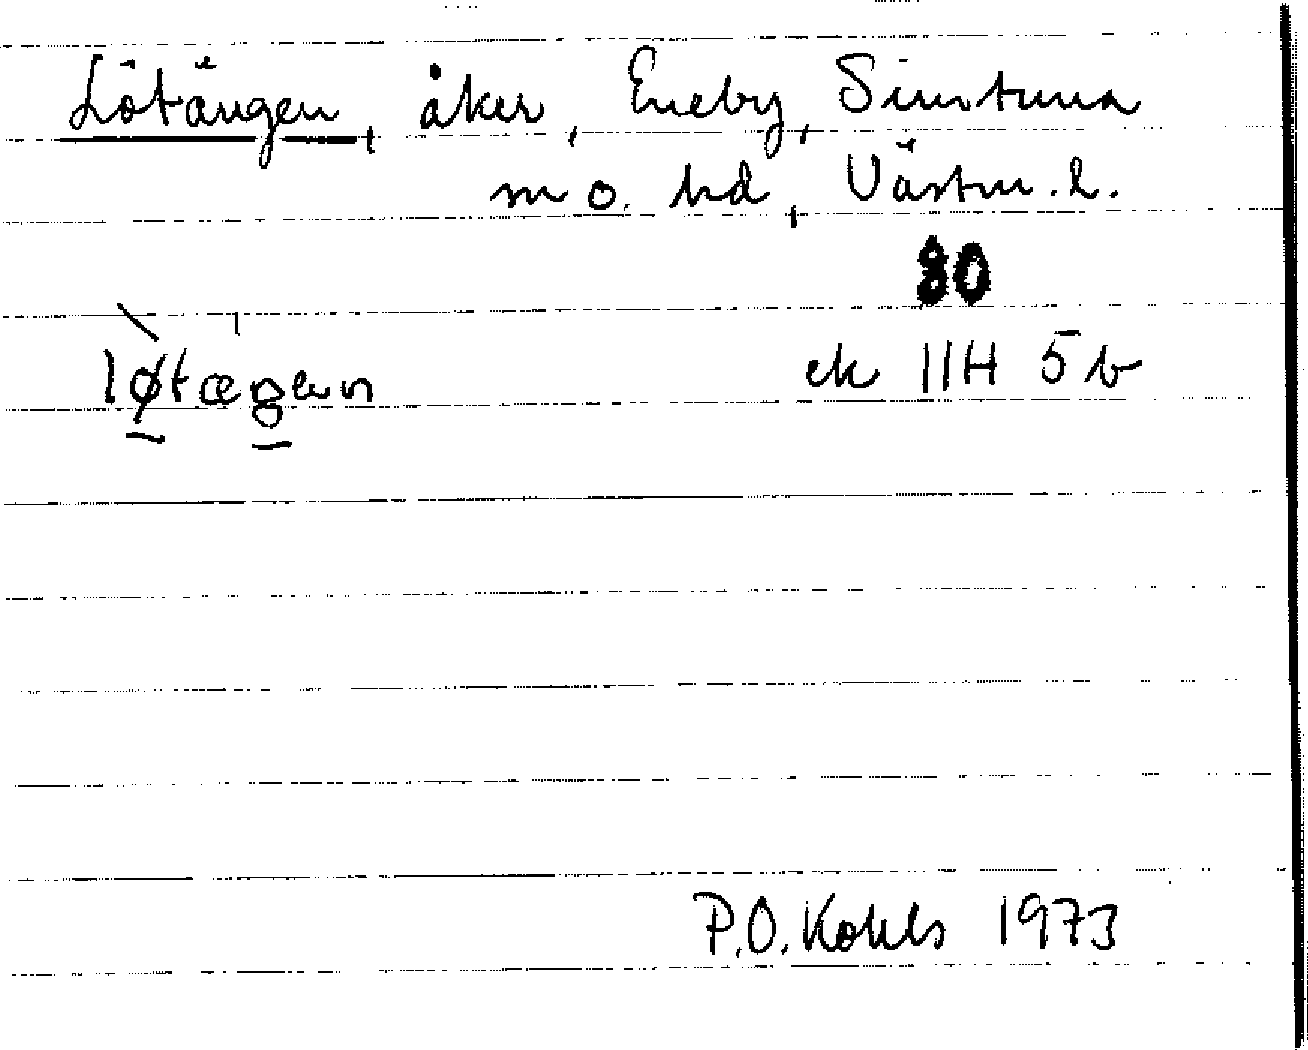 Lötängen, åker, Eneby, Simtuna
m o. hd, Västm. l.
80
ek 11H 5b
P.O. Kohls 1973